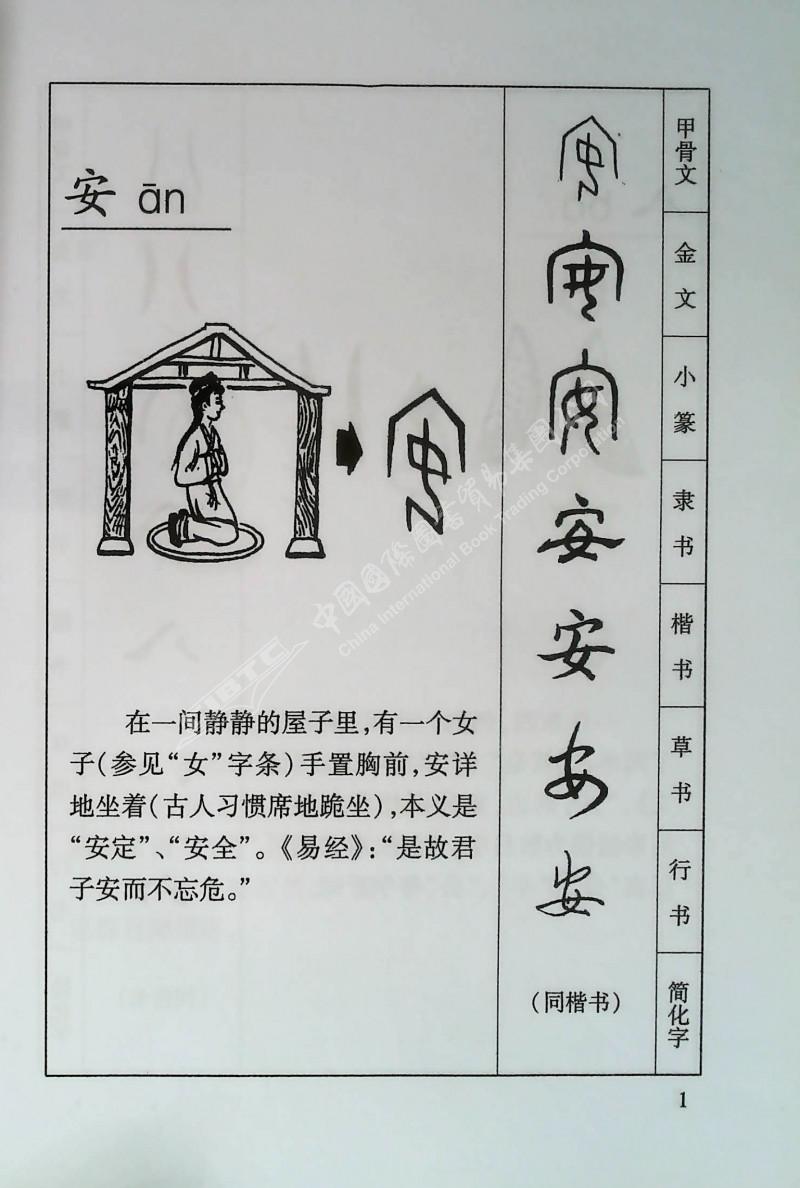 安 ān
在一间静静的屋子里,有一个女
子(参见“女”字条)手置胸前,安详
地坐着(古人习惯席地跪坐),本义是
“安定”、“安全”。《易经》:“是故君
子安而不忘危。”
安 甲骨文
安 金文
安 小篆
安 隶书
安 楷书
安 草书
安 行书
(同楷书) 简化字
1
中国國際圖書貿易集團
China International Book Trading Corporation
CIBTC